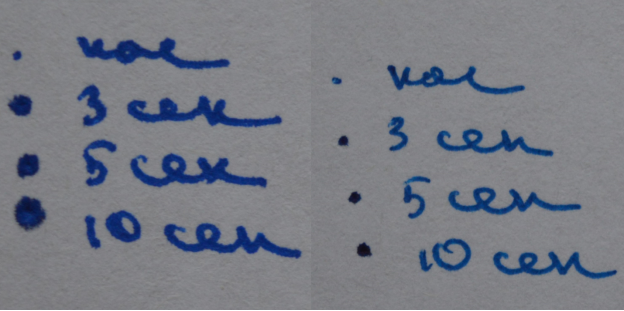 кас
3 сек
5 сек
10 сек
кас
3 сек
5 сек
10 сек